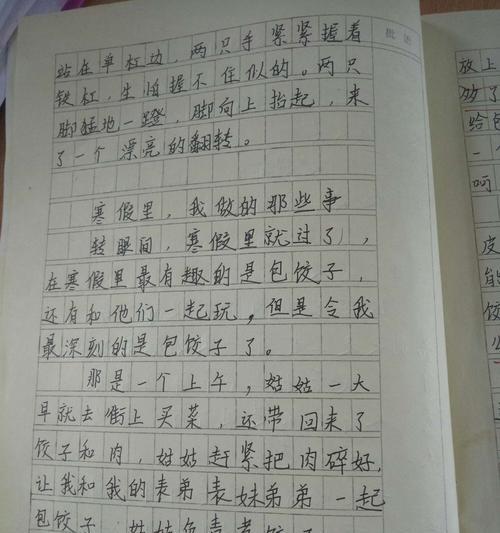 批语
站在单杠边,两只手紧紧握着
铁杠,生怕握不住似的。两只
脚猛地一蹬,脚向上抬起,来
了一个漂亮的翻转。
寒假里,我做的那些事
转眼间,寒假里就过了,
在寒假里最有趣的是包饺子,
还有和他们一起玩,但是令我
最深刻的是包饺子了。
那是一个上午,姑姑一大
早就去街上买菜,还带回来了
饺子和肉,姑姑赶紧把肉碎好,
让我和我的表弟表妹弟弟一起
包饺子
放上
够了
给包
一个
呵
皮
能
饺